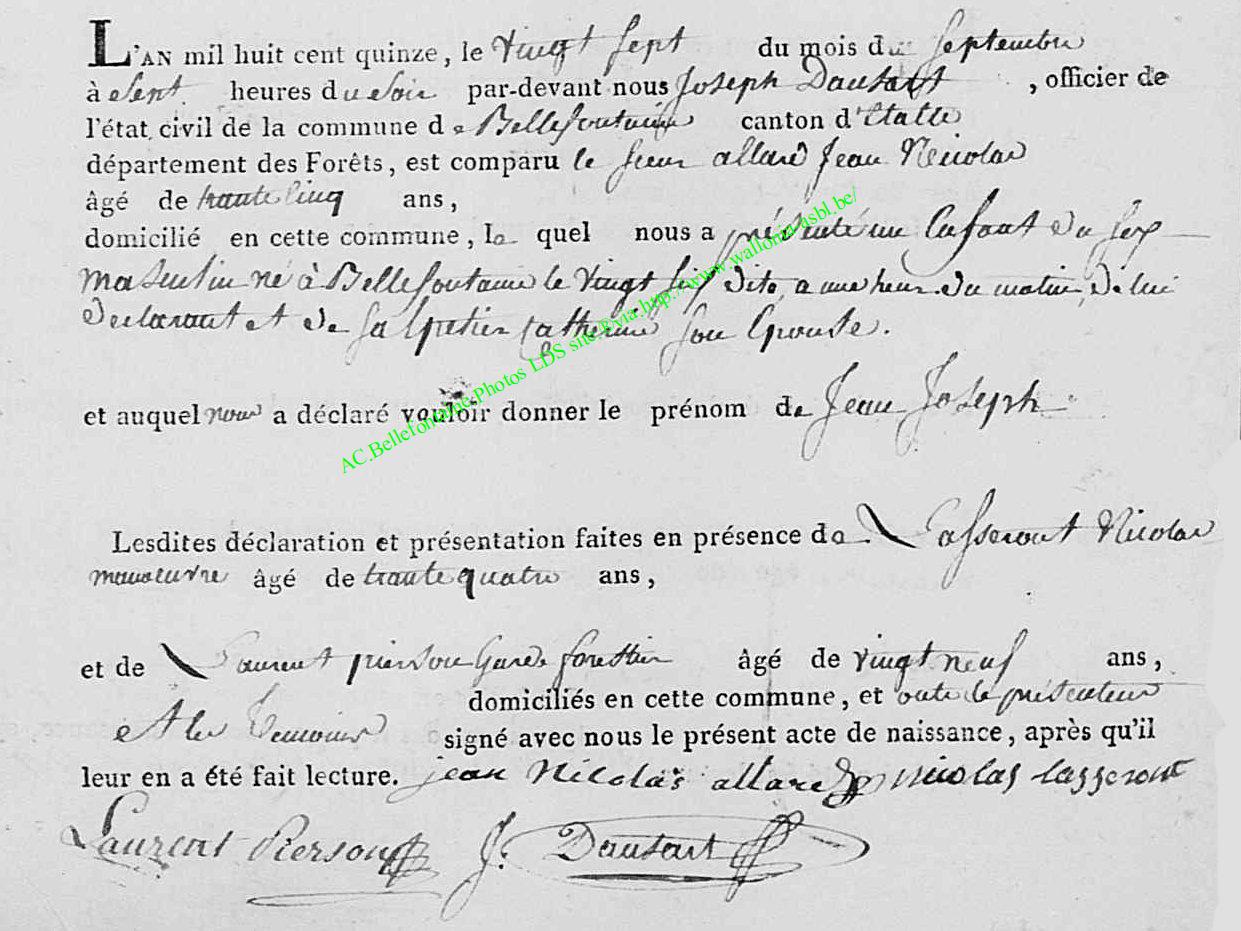 L'AN mil huit cent quinze, le vingt sept du mois du septembre
à sept heures du soir par-devant nous Joseph Dausart, officier de
l'état civil de la commune de Bellefontaine canton d'Etalle
département des Forêts, est comparu le sieur allard Jean Nicolas
âgé de trante cinq ans,
domicilié en cette commune, le quel nous a présenté un Enfant du sex
masculin né à Bellefontaine le vingt six dito, a une heur du matin, de lui
declarant et de Catherine son Epouse.
et auquel nous a déclaré vouloir donner le prénom de Jean Joseph
Lesdites déclaration et présentation faites en présence de Lasseront Nicolas
manoeuvre âgé de trante quatre ans,
et de Laurent pierson Garde forestier âgé de vingt neuf ans,
domiciliés en cette commune, et onts le présenteur
et les Temoins signé avec nous le présent acte de naissance, après qu'il
leur en a été fait lecture. jean Nicolas allard nicolas lasseront
Laurent Pierson J. Dausart
AC.Bellefontaine.Photos LDS site.P.via.http://www.wallonia-asbl.be/